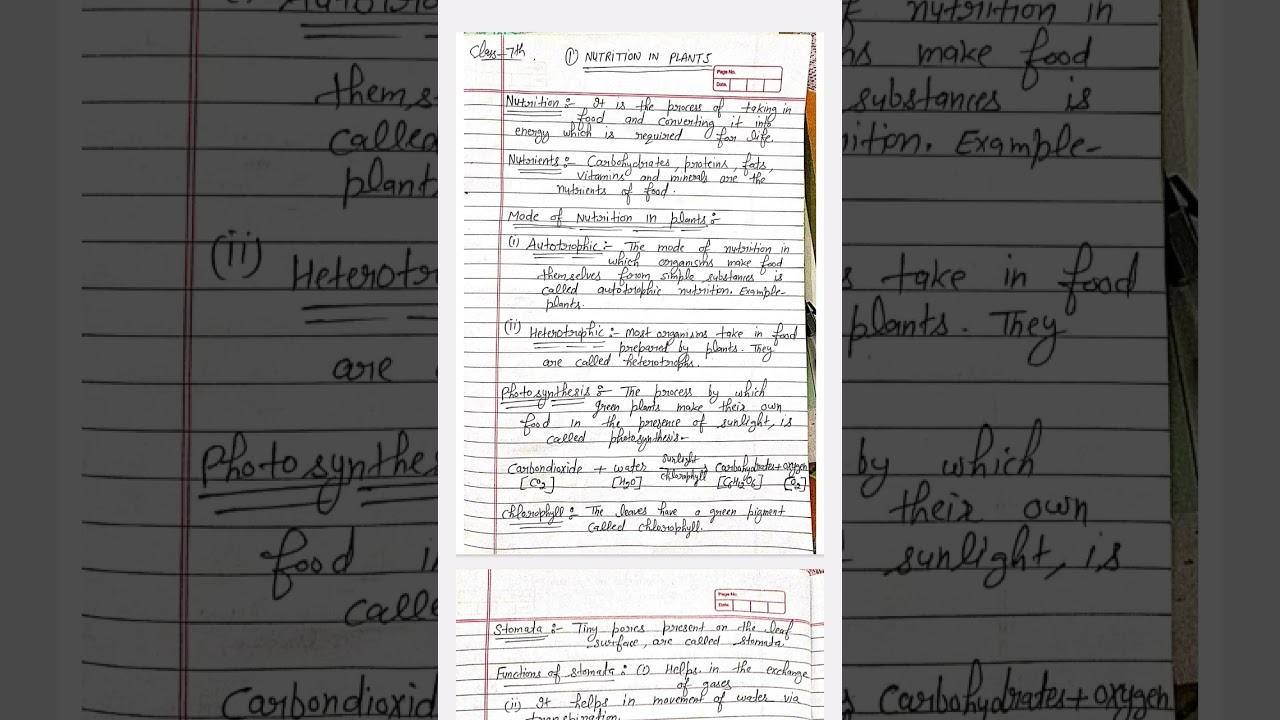 Class-7th.
① NUTRITION IN PLANTS
Page No.
Date.
Nutrition :- It is the process of taking in
food and converting it into
energy which is required for life.
Nutrients :- Carbohydrates, proteins, fats,
vitamins and minerals are the
nutrients of food.
Mode of Nutrition in plants :-
(i) Autotrophic :- The mode of nutrition in
which organisms make food
themselves from simple substances is
called autotrophic nutrition. Example-
plants.
(ii) Heterotrophic :- Most organisms take in food
prepared by plants. They
are called heterotrophs.
Photosynthesis :- The process by which
green plants make their own
food in the presence of sunlight, is
called photosynthesis-
Carbondioxide + water sunlight chlorophyll → Carbohydrates + oxygen
[CO2] [H2O] [C6H12O6] [O2]
Chlorophyll :- The leaves have a green pigment
called chlorophyll.
Page No.
Date.
Stomata :- Tiny pores present on the leaf
surface, are called stomata
Functions of stomata : (i) Helps in the exchange
of gases
(ii) It helps in movement of water via
transpiration.